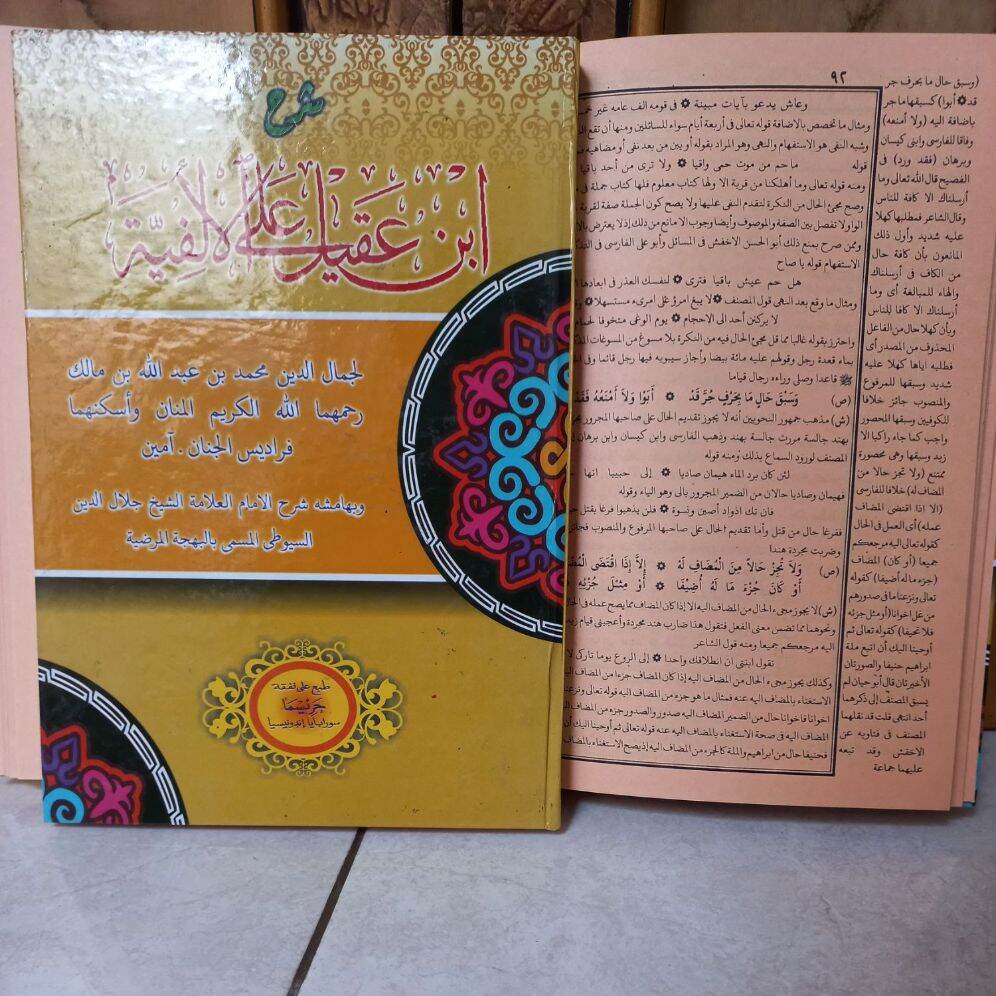 شرح
ابن عقيل على الالفية
لجمال الدين محمد بن عبد الله بن مالك
رحمهما الله الكريم المنان وأسكنهما
فراديس الجنان . آمين
وبهامشه شرح الامام العلامة الشيخ جلال الدين
السيوطى المسمى بالبهجة المرضية
طبع على نفقة
حريسما
سورابايا إندونيسيا
٩٢
وعاش يدعو بآيات مبينة ۞ فى قومه الف عامه غير
ومثال ما تخصص بالاضافة قوله تعالى فى أربعة أيام سواء للسائلين ومنها أن تقع
وشبه النفى هو الاستفهام والنهى وهو المراد بقوله أو يبن من بعد نفى أو مضاهيه
قوله ماحم من موت حمى واقيا ۞ ولا ترى من أحد باقيا
ومنه قوله تعالى وما أهلكنا من قرية الا ولها كتاب معلوم فلها كتاب جملة فى
وصح مجئ الحال من النكرة لتقدم النفى عليها ولا يصح كون الجملة صفة لقرية
الواو لا تفصل بين الصفة والموصوف وأيضا وجود الا مانع من ذلك إذ لا يعترض بالا
وممن صرح بمنع ذلك أبو الحسن الاخفش فى المسائل وأبو على الفارسى فى
الاستفهام قوله يا صاح
هل حم عيش باقيا فترى ۞ لنفسك العذر فى ابعادها
ومثال ما وقع بعد النهى قول المصنف ۞ لا يبغ امرؤ على امرىء مستسهلا ۞
لا يركنن أحد الى الاحجام ۞ يوم الوغى متخوفا لحمام
واحترز بقوله غالبا مما قل مجئ الحال فيه من النكرة بلا مسوغ من المسوغات
بماء قعدة رجل وقولهم عليه مائة بيضا وأجاز سيبويه فيها رجل قائما وفى
ﷺ قاعدا وصلى وراءه رجال قياما
(ص) وَسَبْقَ حَالٍ مَا بِحَرْفٍ جُرَّ قَدْ ۞ أَبَوْا وَلَا أَمْنَعُهُ فَقَدْ
(ش) مذهب جمهور النحويين أنه لا يجوز تقديم الحال على صاحبها المجرور
بهند جالسة مررت جالسة بهند وذهب الفارسى وابن كيسان وابن برهان
المصنف لورود السماع بذلك ومنه قوله
لئن كان برد الماء هيمان صاديا ۞ إلى حبيبا انها
فهيمان وصاديا حالان من الضمير المجرور بالى وهو الياء وقوله
فان تك اذواد أصبن ونسوة ۞ فلن يذهبوا فرغا بقتل
ففرغا حال من قتل وأما تقديم الحال على صاحبها المرفوع والمنصوب فجائز
وضربت مجردة هندا
(ص) وَلَا تُجِزْ حَالًا مِنَ الْمُضَافِ لَهُ ۞ إِلَّا إِذَا اقْتَضَى
أَوْ كَانَ جُزْءَ مَا لَهُ أُضِيفَا ۞ أَوْ مِثْلَ جُزْئِهِ
(ش) لا يجوز مجىء الحال من المضاف اليه الا إذا كان المضاف مما يصح عمله فى
ونحوهما مما تضمن معنى الفعل فتقول هذا ضارب هند مجردة وأعجبنى قيام
اليه مرجعكم جميعا ومنه قول الشاعر
تقول ابنتى ان انطلاقك واحدا ۞ إلى الروع يوما تاركى
وكذلك يجوز مجىء الحال من المضاف اليه إذا كان المضاف جزءا من المضاف
الاستغناء بالمضاف اليه عنه فمثال ما هو جزء من المضاف اليه قوله تعالى ونزعنا
اخوانا فاخوانا حال من الضمير المضاف اليه صدور والصدور جزء من المضاف
المضاف اليه فى صحة الاستغناء بالمضاف اليه عنه قوله تعالى ثم أوحينا اليك أن
فحنيفا حال من ابراهيم والملة كالجزء من المضاف اليه إذ يصح الاستغناء بالمضاف
(وسبق حال ما بحرف جر
قد ۞ أبوا) كسبقها ما جر
باضافة اليه (ولا أمنعه)
وفاقا للفارسى وابنى كيسان
وبرهان (فقد ورد) فى
الفصيح قال الله تعالى وما
أرسلناك الا كافة للناس
وقال الشاعر فمطلبها كهلا
عليه شديد وأول ذلك
المانعون بأن كافة حال
من الكاف فى أرسلناك
والهاء للمبالغة أى وما
أرسلناك الا كافا للناس
وبأن كهلا حال من الفاعل
المحذوف من المصدر أى
فطلبه اياها كهلا عليه
شديد وسبقها للمرفوع
والمنصوب جائز خلافا
للكوفيين وسبقها المحصور
واجب كما جاء راكبا الا
زيد وسبقها وهى محصورة
ممتنع (ولا تجز حالا من
المضاف له) خلافا للفارسى
(الا اذا اقتضى المضاف
عمله) أى العمل فى الحال
كقوله تعالى اليه مرجعكم
جميعا (أو كان) المضاف
(جزء ما له أضيفا) كقوله
تعالى ونزعنا ما فى صدورهم
من غل اخوانا (أو مثل جزئه
فلا تحيفا) كقوله تعالى ثم
أوحينا اليك أن اتبع ملة
ابراهيم حنيفا والصورتان
الأخيرتان قال أبو حيان لم
يسبق المصنف إلى ذكرهما
أحد انتهى قلت قد نقلهما
المصنف فى فتاويه عن
الاخفش وقد تبعه
عليهما جماعة